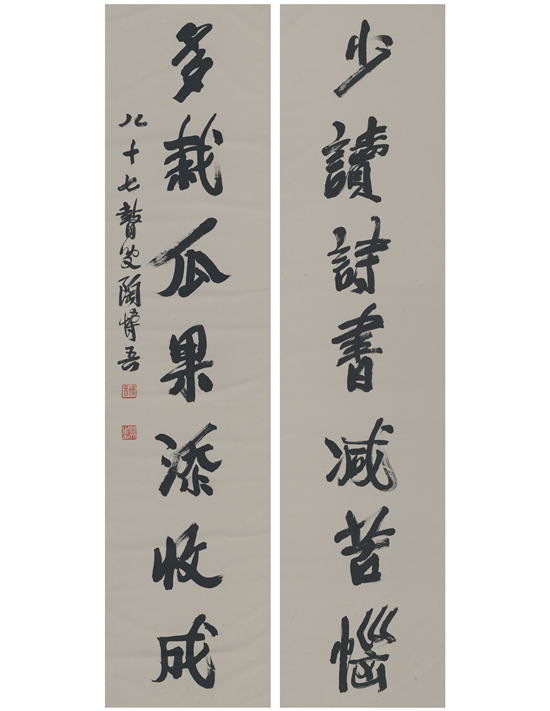 少讀詩書減苦惱
多栽瓜果添收成
八十七瞽叟陶博吾